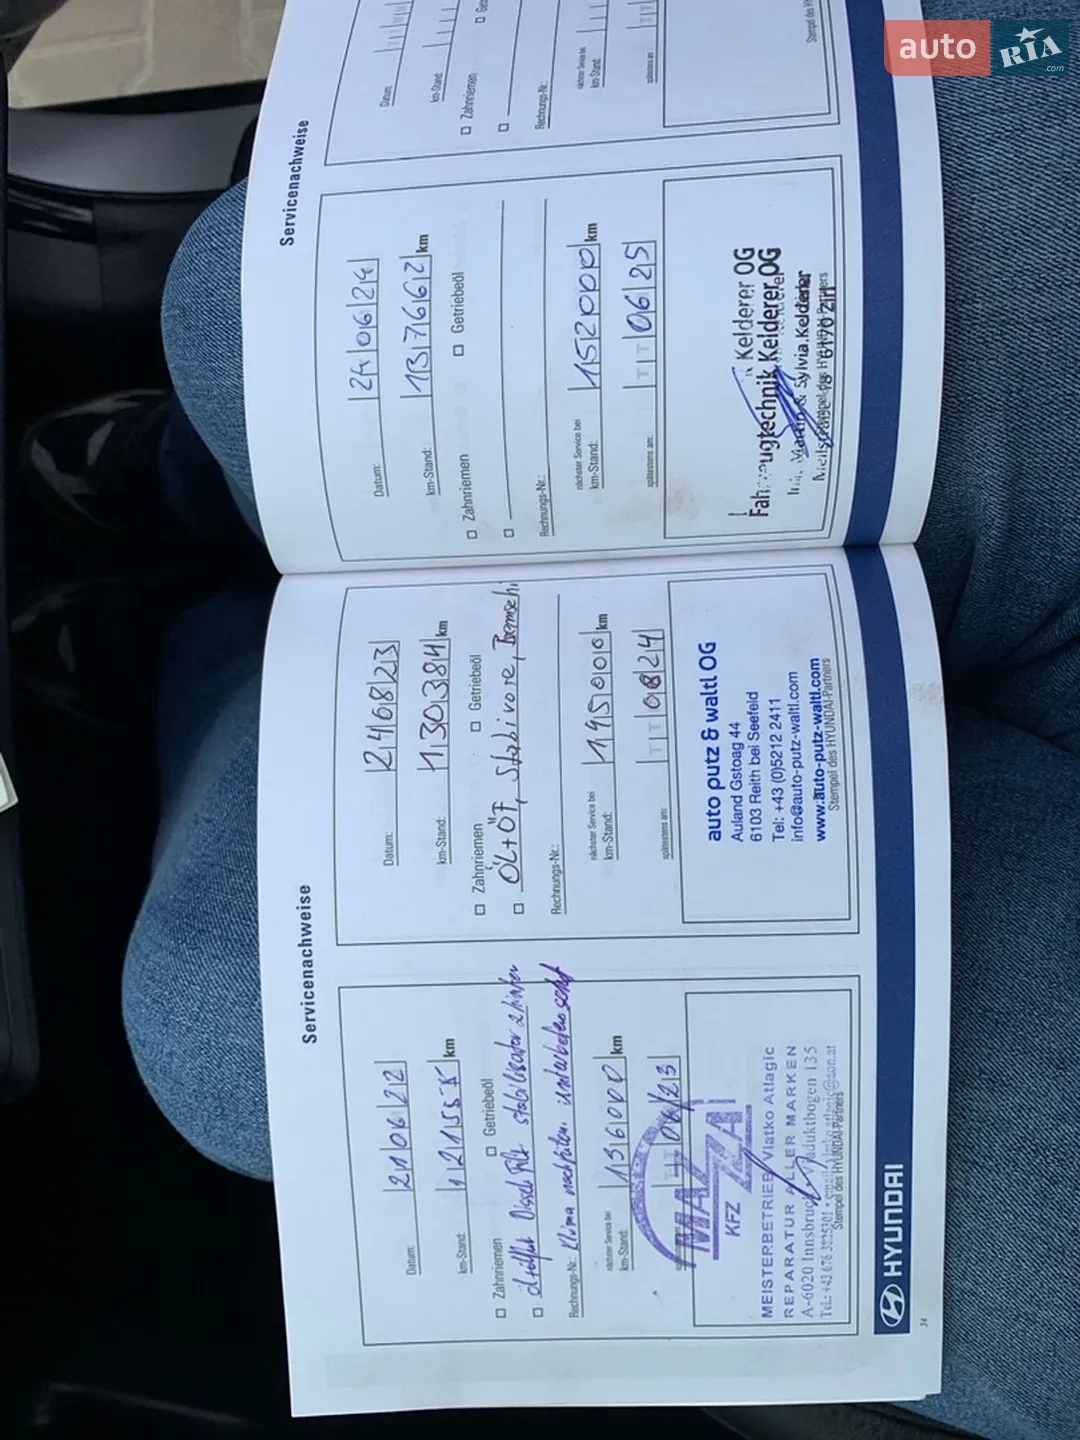 auto
RIA
.com
Servicenachweise
Datum: 21 06 22
km-Stand: 121555 km
Zahnriemen
Getriebeöl
Rechnungs-Nr.: Klima
nächster Service bei
km-Stand: 136000 km
06/23
MAZZA
KFZ
MEISTERBETRIEB Vlatko Atlagic
REPARATUR ALLER MARKEN
A-6020 Innsbruck, Viaduktbogen 135
Stempel des HYUNDAI-Partners
HYUNDAI
34
Datum: 24 08 23
km-Stand: 130384 km
Zahnriemen
Getriebeöl
ÖL+ÖF, Stabi vore,
Rechnungs-Nr.:
nächster Service bei
km-Stand: 145000 km
spätestens am: TT 08 24
auto putz & waltl OG
Auland Gstoag 44
6103 Reith bei Seefeld
Tel: +43 (0)5212 2411
info@auto-putz-waltl.com
www.auto-putz-waltl.com
Stempel des HYUNDAI-Partners
Servicenachweise
Datum: 24 06 24
km-Stand: 137662 km
Zahnriemen
Getriebeöl
Rechnungs-Nr.:
nächster Service bei
km-Stand: 152000 km
spätestens am: TT 06 25
Kelderer OG
Fahrzeugtechnik Kelderer OG
Martin & Sylvia Kelderer
6170 Zirl
Datum:
km-Stand:
Zahnriemen
Rechnungs-Nr.:
nächster Service bei
km-Stand:
spätestens am: